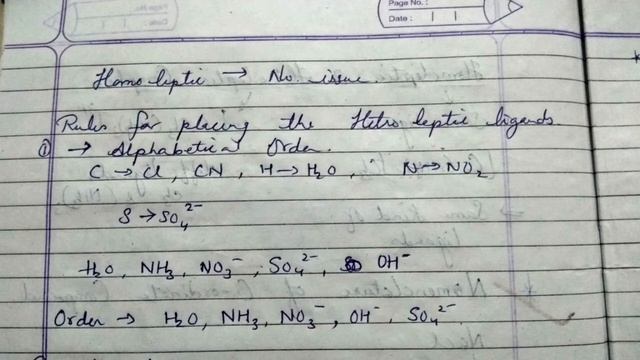 Page No. :
Date :
Homo leptic → No issue.
Rules for placing the Hetro leptic ligands.
① → Alphabetical Order.
C → Cl, CN, H → H₂O, N → NO₂
S → SO₄²⁻
H₂O, NH₃, NO₃⁻, SO₄²⁻, OH⁻
Order → H₂O, NH₃, NO₃⁻, OH⁻, SO₄²⁻.